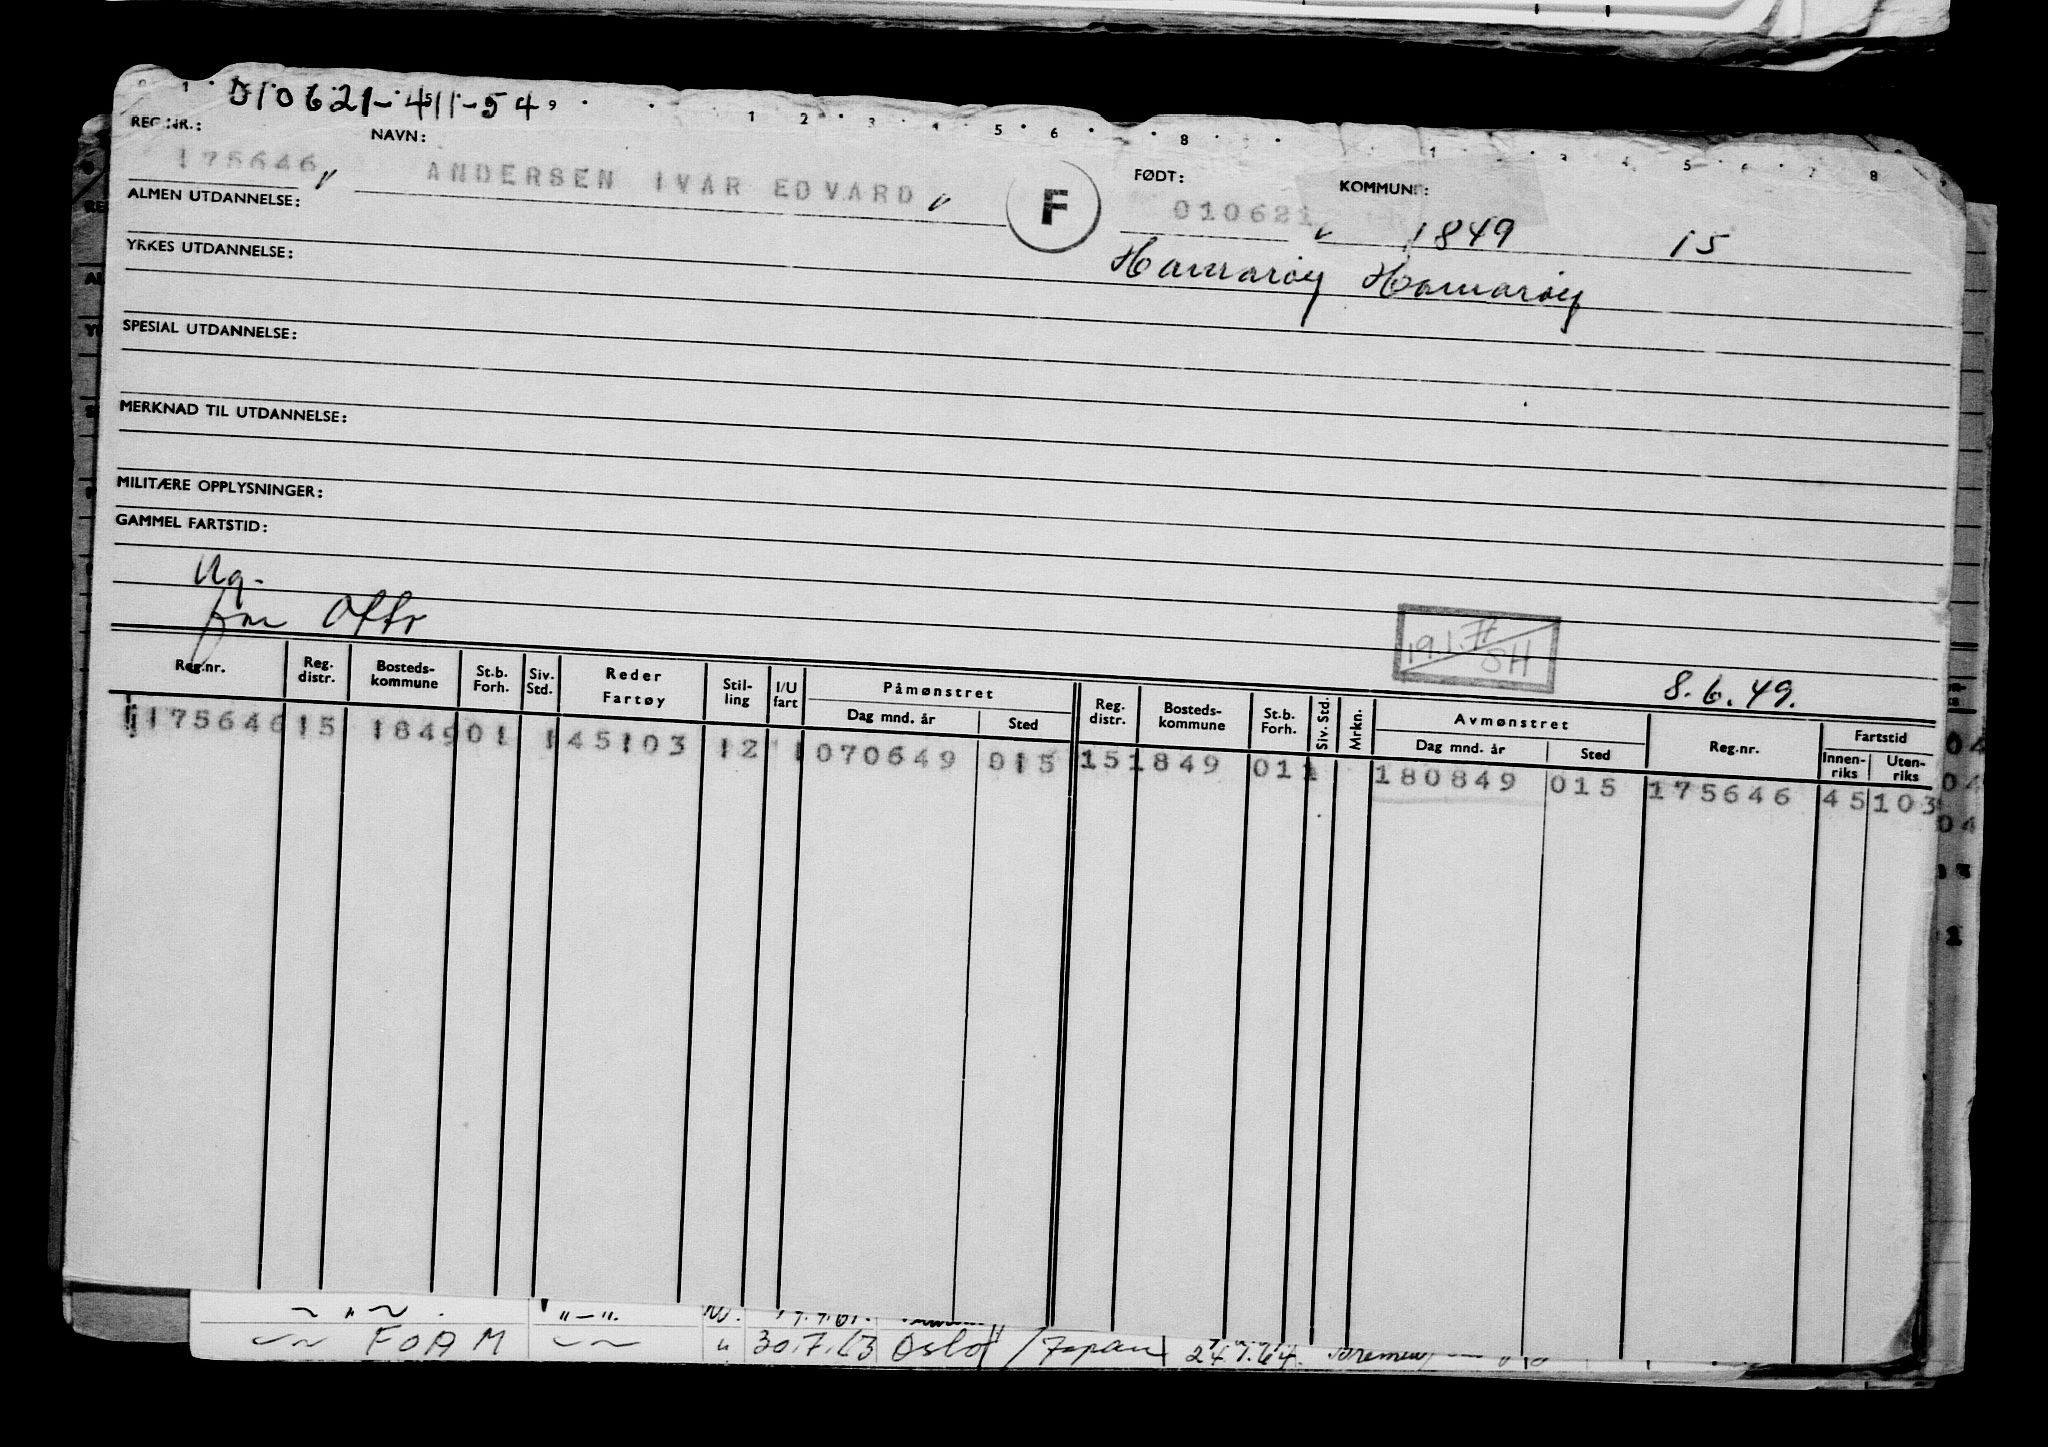 010621-411-54
REG.NR.: NAVN: FØDT: KOMMUNE:
175646 ANDERSEN IVAR EDVARD F 010621 1849 15
Hamarøy Hamarøy
ALMEN UTDANNELSE:
YRKES UTDANNELSE:
SPESIAL UTDANNELSE:
MERKNAD TIL UTDANNELSE:
MILITÆRE OPPLYSNINGER:
GAMMEL FARTSTID:
19.1.77
SH
8.6.49.
Reg.nr. Reg. distr. Bosteds-kommune St.b. Forh. Siv. Std. Reder Fartøy Stil-ling I/U fart Påmønstret Dag mnd. år Sted Reg. distr. Bosteds-kommune St.b. Forh. Siv. Std. Mrkn. Avmønstret Dag mnd. år Sted Reg.nr. Fartstid Innen-riks Uten-riks
175646 15 1849 01 1 45103 12 1 070649 015 15 1849 01 1 180849 015 175646 45 103
FOAM 30.7.63 Oslo / Japan 24.7.64. Bremen